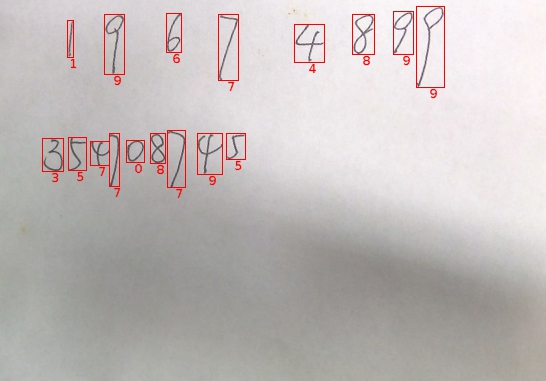 1 9 6 7 4 8 9 9
1 9 6 7 4 8 9 9
3 5 4 7 0 8 7 4 5
3 5 7 7 0 8 7 9 5